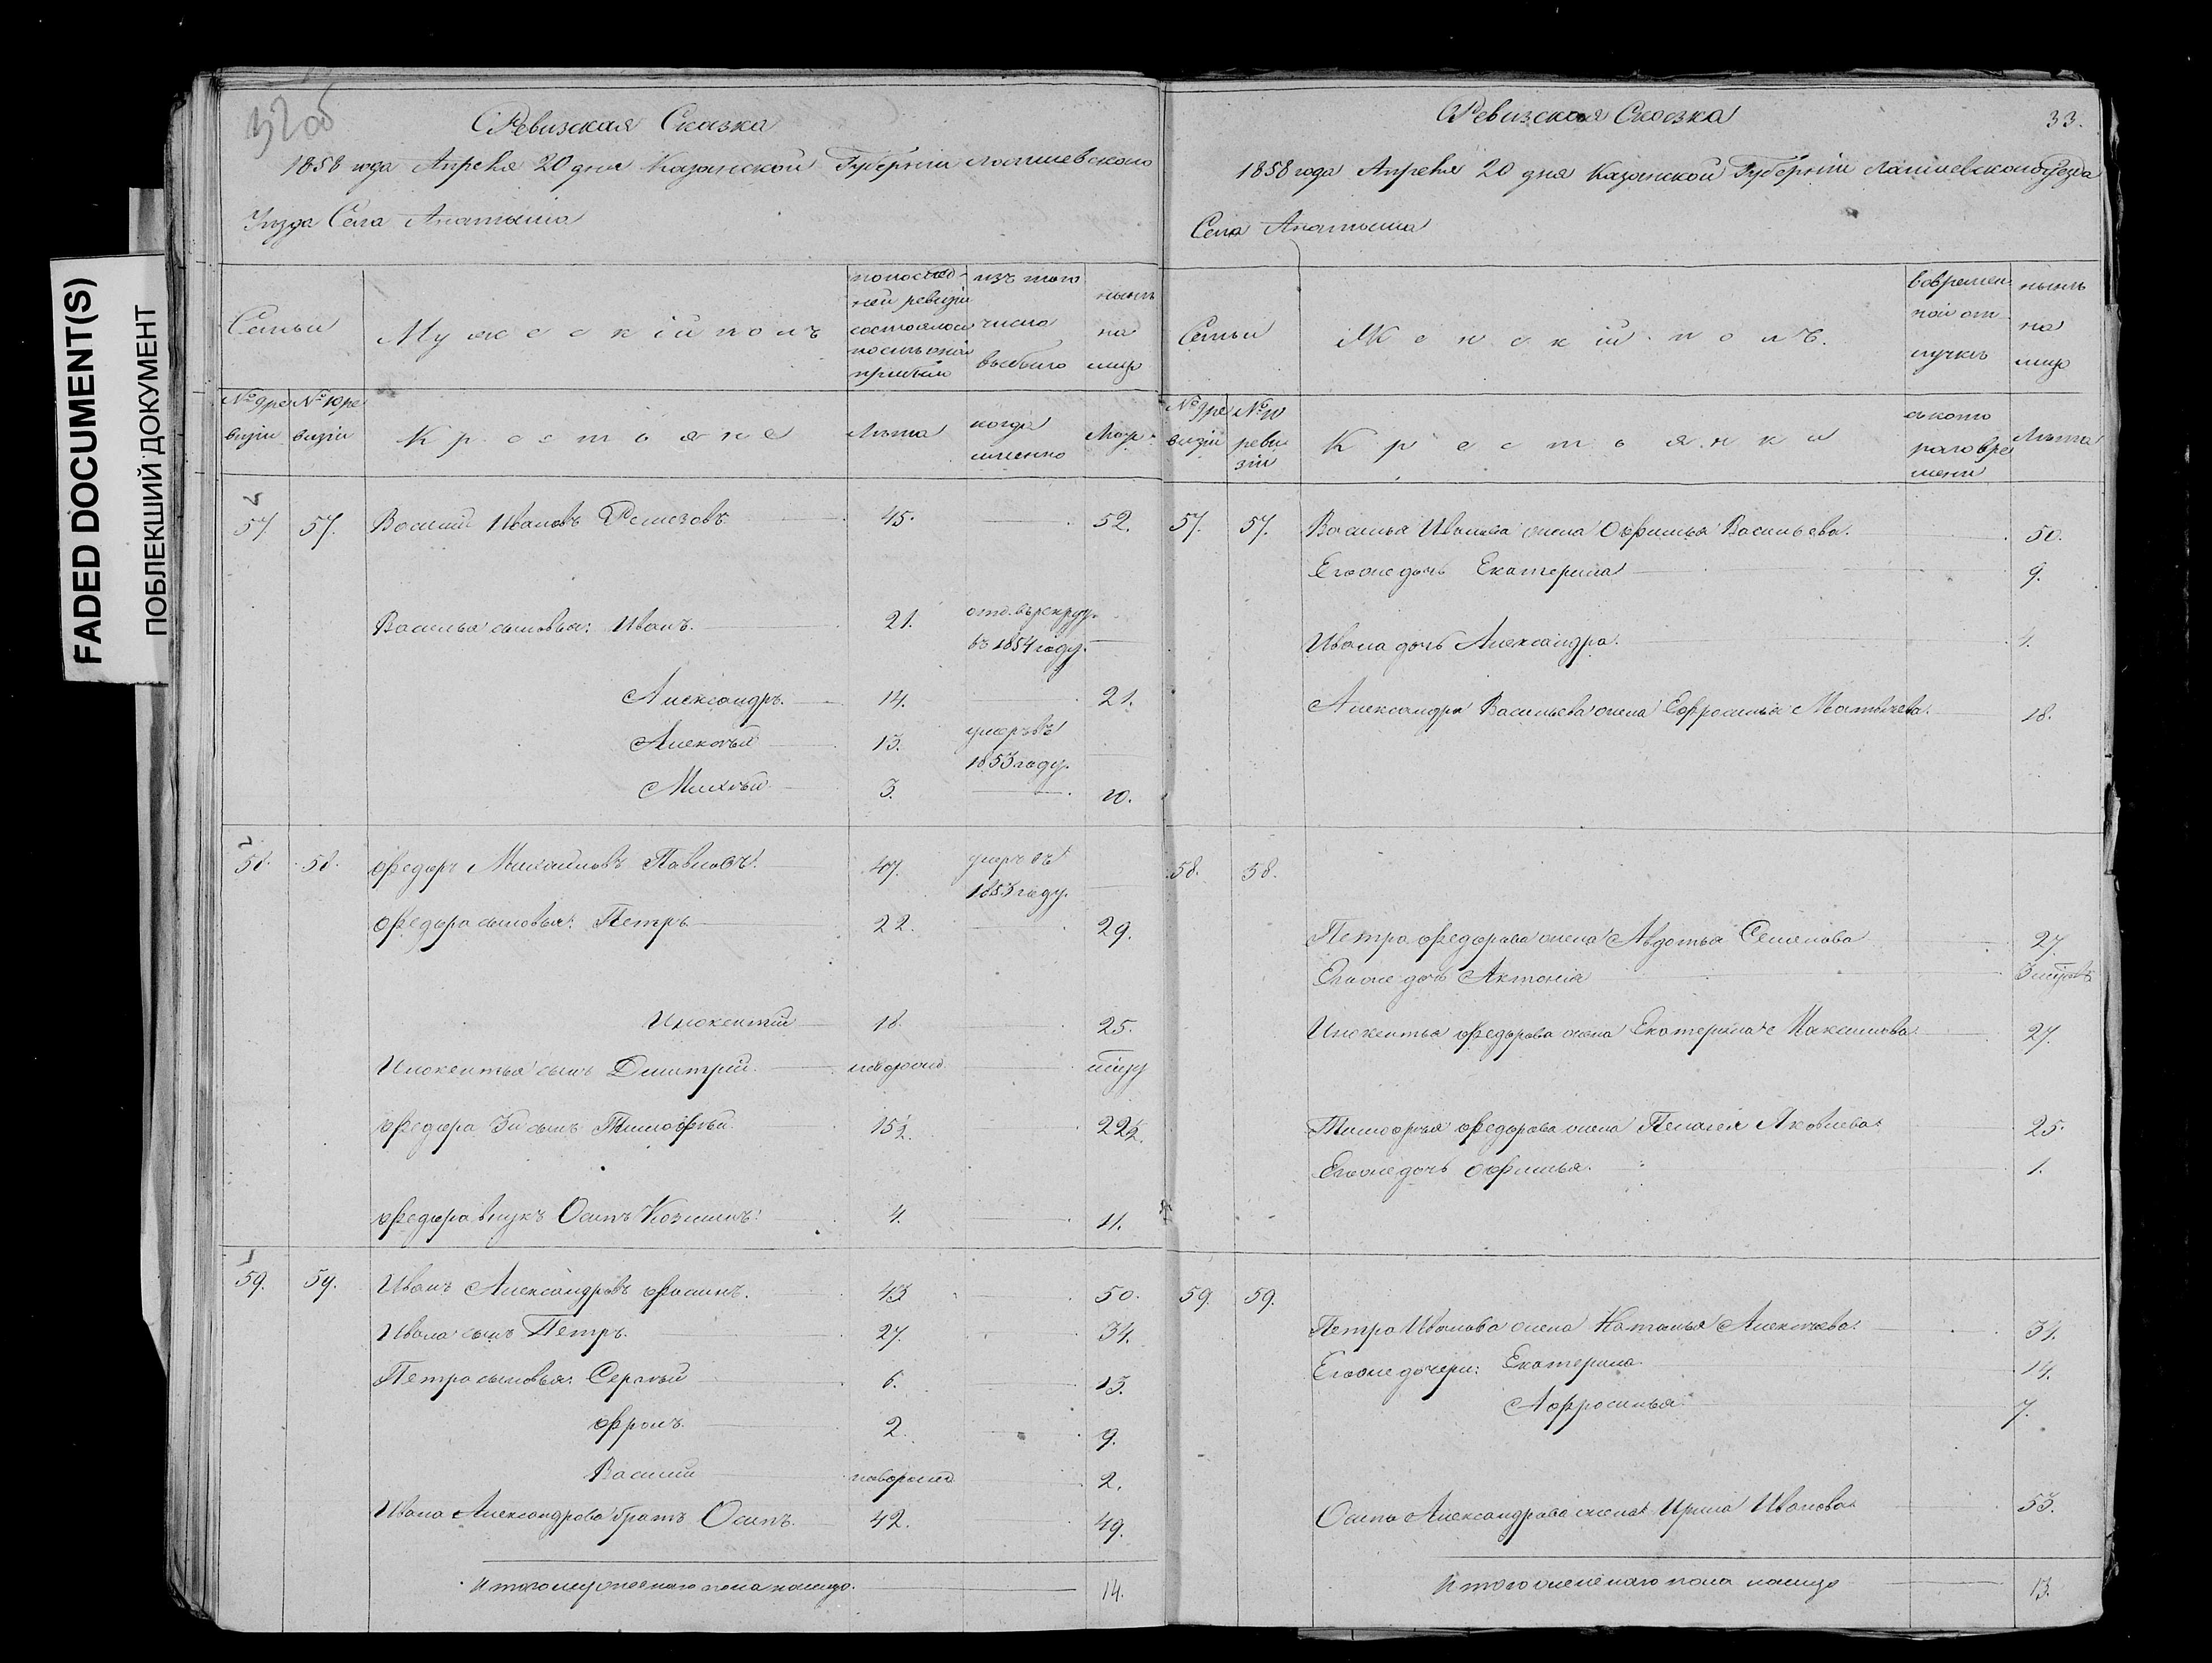 FADED DOCUMENT(S)
ПОБЛЕКШИЙ ДОКУМЕНТ
32об
Ревизская Сказка
1858 года Апреля 20 дня Казанской Губернiи Лаишевскаго
Уѣзда Села Анатыша
Семьи
Мужескiй полъ
по послѣд-
ней ревизiи
состояло и
послѣ оной
прибыло
изъ того
числа
выбыло
нынѣ
на
лицо
№ 9 ре
визiи
№ 10 ре
визiи
Крестьяне
Лѣта
когда
именно
Лѣта
57. 57. Василiй Ивановъ Ремезовъ. 45. 52.
Василья сыновья: Иванъ. 21. отд. въ рекруты
въ 1854 году.
Александръ. 14. 21.
Алексѣй 13. умеръ въ
1853 году.
Михѣй 3. 10.
58. 58. Федоръ Михайловъ Павловъ. 47. умеръ въ
1853 году.
Федора сыновья: Петръ 22. 29.
Инокентiй 18. 25.
Инокентья сынъ Дмитрiй. новорожд.
Федора 3й сынъ Тимофѣй. 15½. 22½.
Федора внукъ Осипъ Козминъ. 4. 11.
59. 59. Иванъ Александровъ Фоминъ. 43 50.
Ивана сынъ Петръ. 27. 34.
Петра сыновья: Сергѣй 6. 13.
Фролъ. 2. 9.
Василiй новорожд 2.
Ивана Александрова братъ Осипъ. 42. 49.
Итого мужескаго пола налицо. 14.
Ревизская Сказка
33.
1858 года Апреля 20 дня Казанской Губернiи Лаишевскаго Уѣзда
Села Анатыша
Семьи
Женскiй полъ.
во времен
ной от
лучкѣ
нынѣ
на
лицо
№ 9 ре
визiи
№ 10
реви
зiи
Крестьянки
съ кото
раго вре
мени
Лѣта
57. 57. Василья Иванова жена Офимья Васильева. 50.
Его же дочь Екатерина 9.
Ивана дочь Александра. 4.
Александра Васильева жена Ефросинья Матвѣева. 18.
58. 58.
Петра Федорова жена Авдотья Семенова 27.
Его же дочь Антонiя
Инокентья Федорова жена Екатерина Максимова 27.
Тимофѣя Федорова жена Пелагея Яковлева 25.
Его же дочь Офимья. 1.
59. 59.
Петра Иванова жена Наталья Алексѣева. 34.
Его же дочери: Екатерина 14.
Афросинья 7.
Осипа Александрова жена Ирина Иванова 53.
Итого женскаго пола налицо 13.